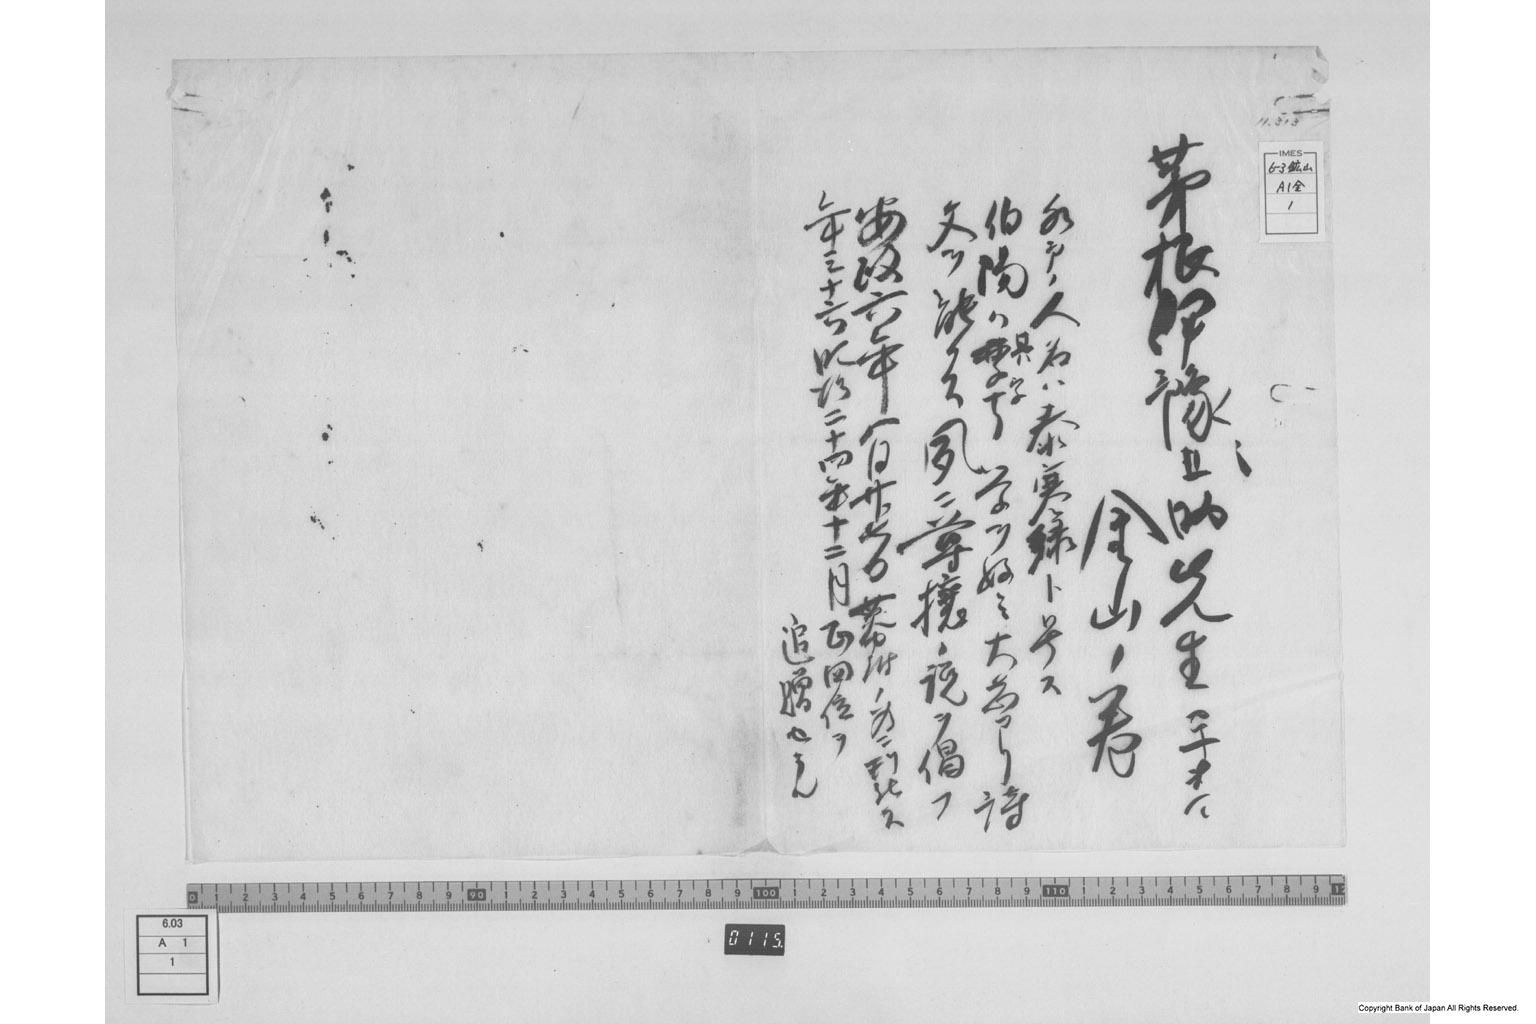 11.313
IMES
6-3鉱山
A1金
1
茅根伊豫之助先生
金山ノ巻
水戸ノ人名ハ泰寒緑ト号ス
伯陽ハ其字 学ヲ好ミ大志アリ詩
文ヲ能クス夙ニ尊攘ノ説ヲ倡フ
安政六年八月廿七日幕府ノ為ニ刑死ス
年三十六明治二十四年十二月正四位ヲ
追贈セラル
0 1 2 3 4 5 6 7 8 9 90 1 2 3 4 5 6 7 8 9 100 1 2 3 4 5 6 7 8 9 110 1 2 3 4 5 6 7 8 9
6.03
A 1
1
0115
Copyright Bank of Japan All Rights Reserved.